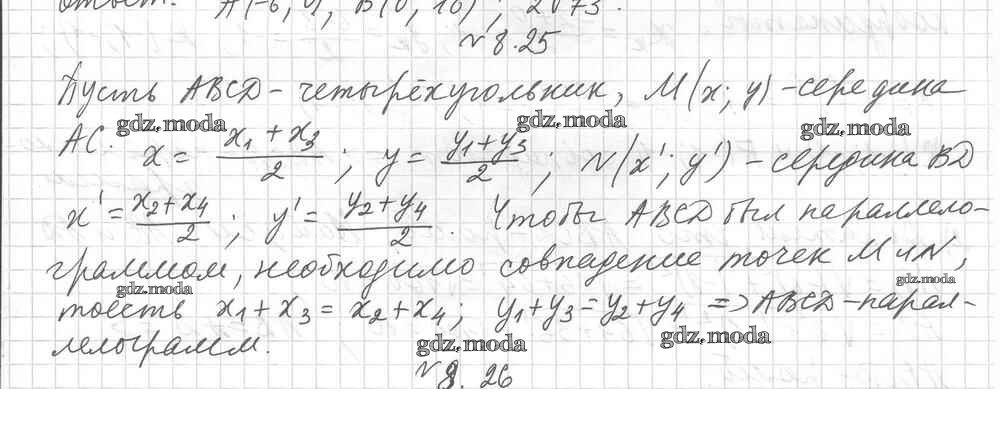 Ответ: A(-6; 4), B(0; 16); 2√73.
№8.25
Пусть ABCD - четырёхугольник, M(x; y) - середина
AC. x = (x₁ + x₃)/2 ; y = (y₁ + y₃)/2 ; N(x'; y') - середина BD
x' = (x₂ + x₄)/2 ; y' = (y₂ + y₄)/2 . Чтобы ABCD был параллело-
граммом, необходимо совпадение точек M и N,
тоесть x₁ + x₃ = x₂ + x₄; y₁ + y₃ = y₂ + y₄ => ABCD - парал-
лелограмм.
№8.26
gdz.moda
gdz.moda
gdz.moda
gdz.moda
gdz.moda
gdz.moda
gdz.moda